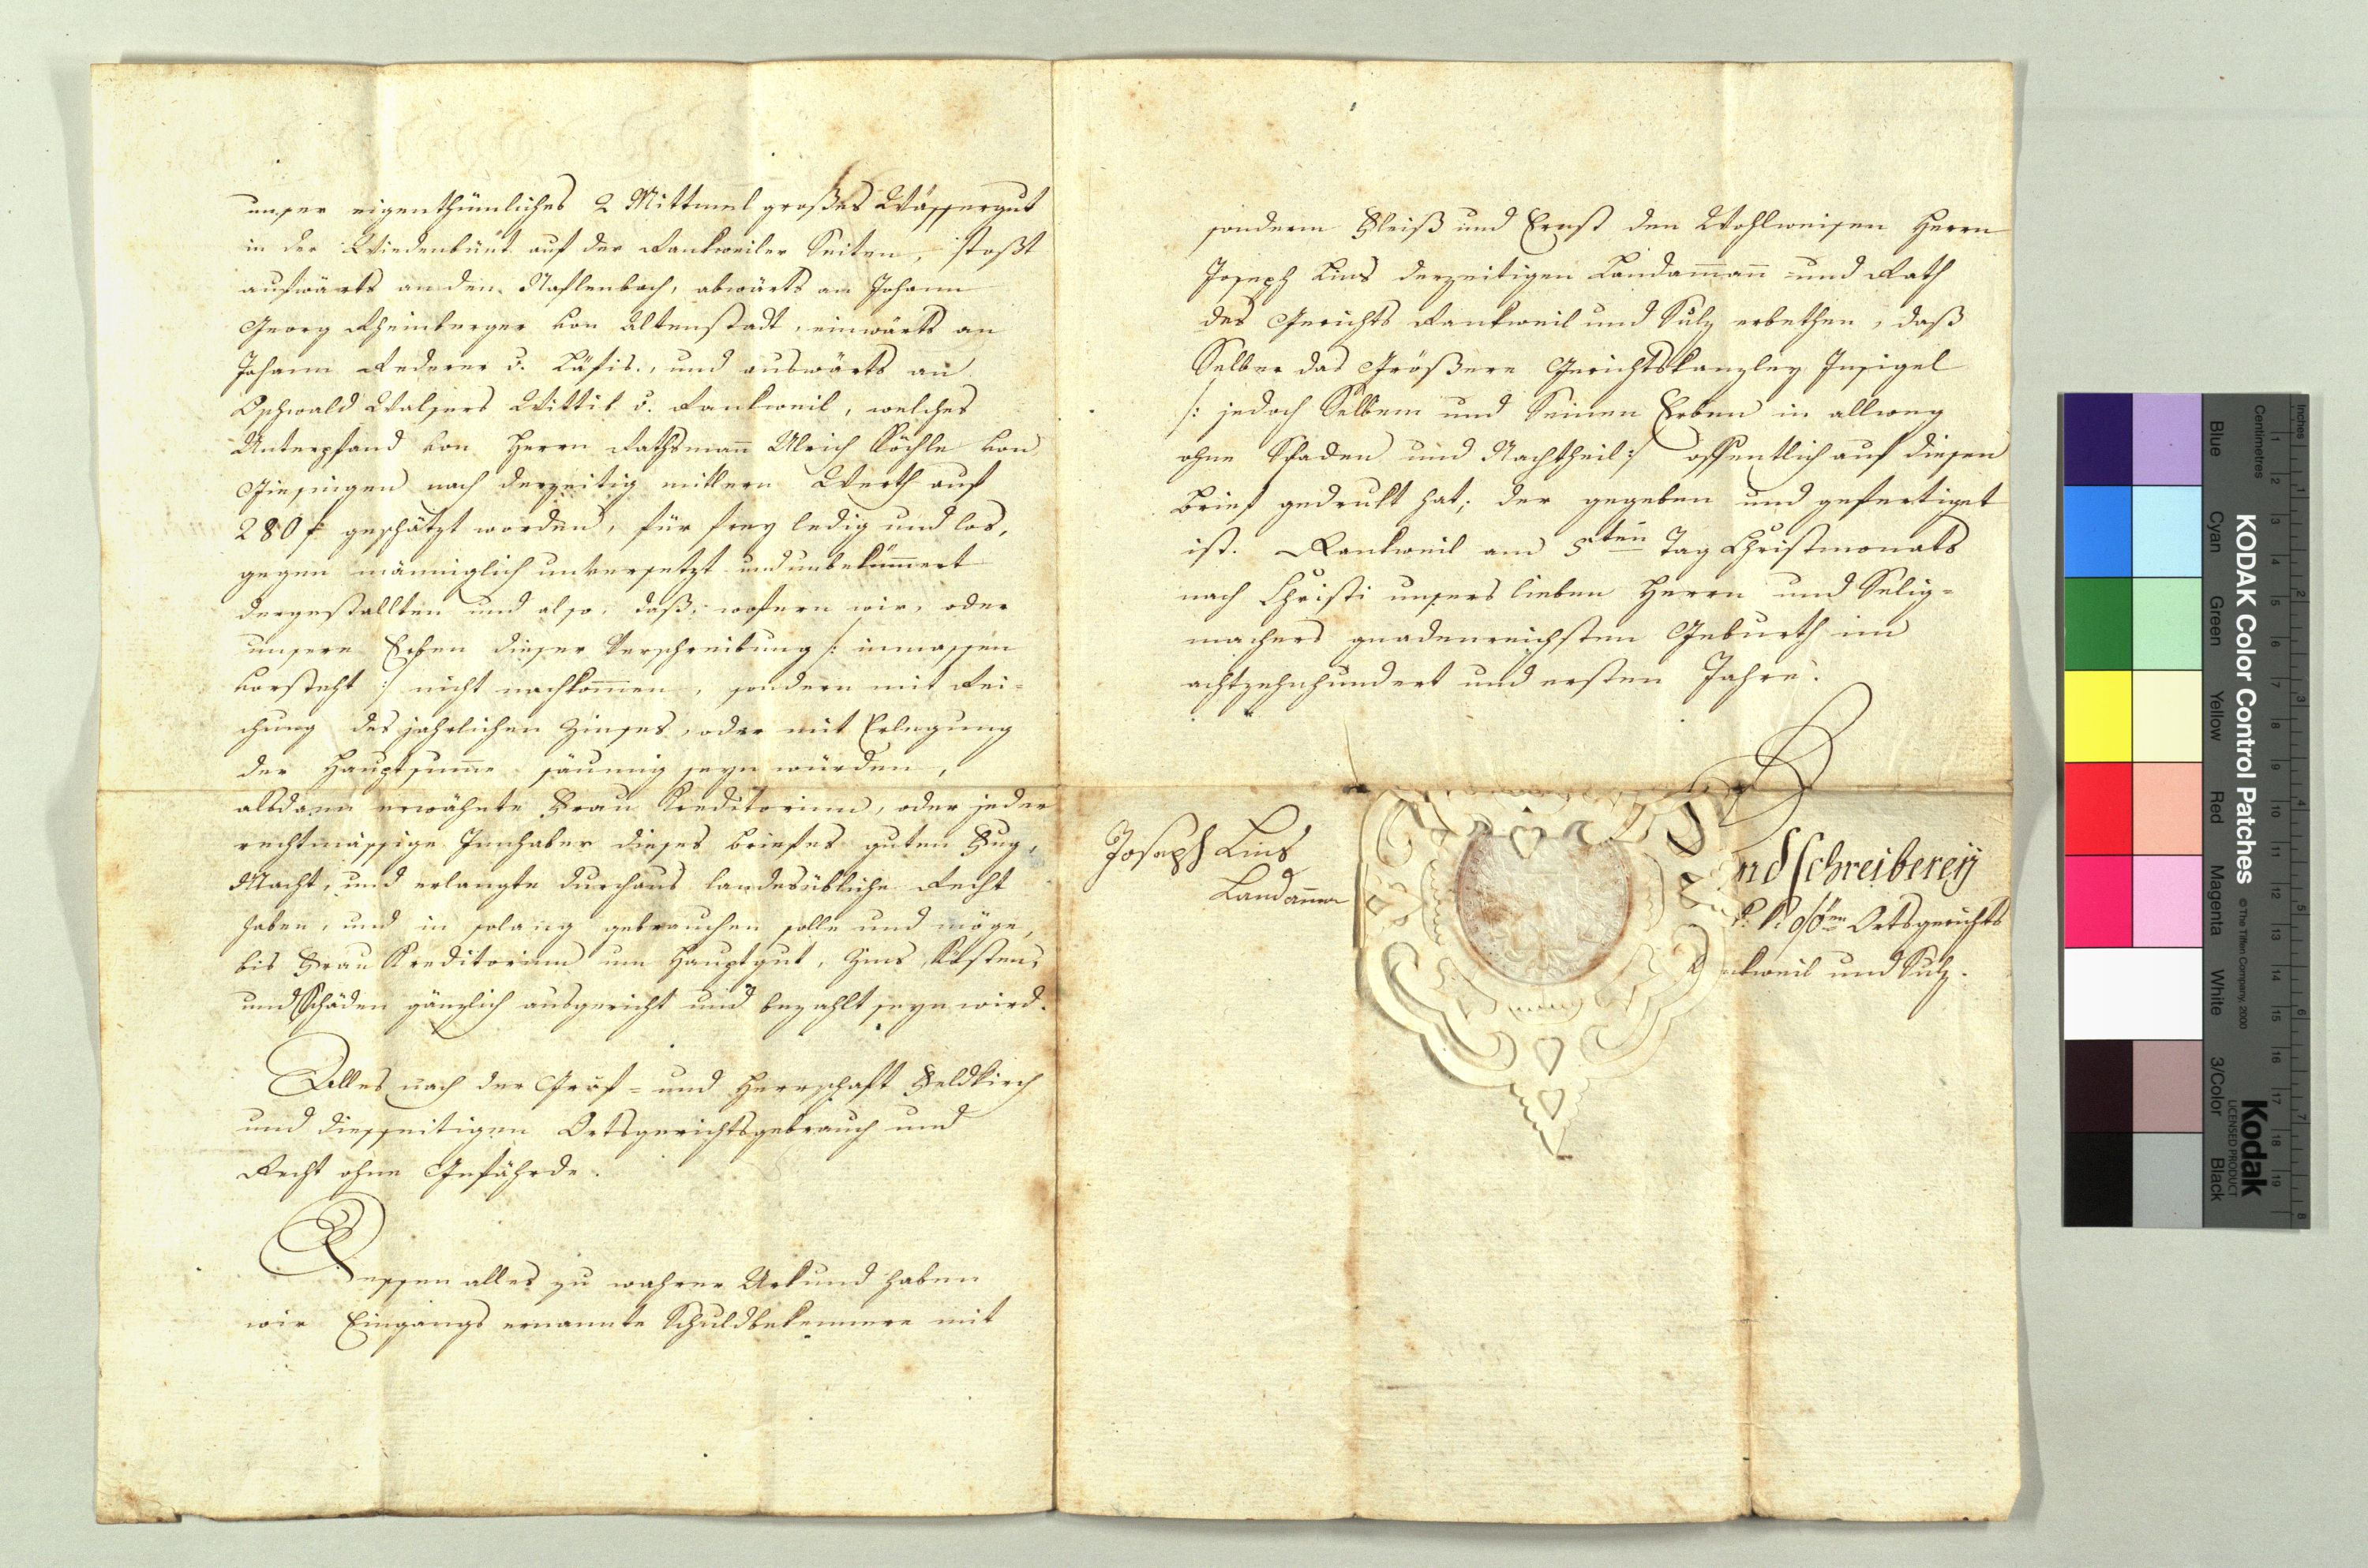 unser eigenthümliches 2 Mittmel großes Wässergut
in der Wiedenbünt auf der Rankweiler Seiten, stoßt
aufwärts an den Naflenbach, abwärts an Johann
Georg Rheinberger von Altenstadt, einwärts an
Johann Rederer v. Läfis., und auswärts an
Oschwald Walsers Wittib v. Rankweil, welches
Unterpfand von Herrn Rathsmañ Ulrich Köchle von
Giesingen nach derzeitig mitlern Werth auf
280 f geschätzt worden, für frey ledig und los,
gegen männiglich unversetzt und unbekümmert
dergestallten und also, daß, wofern wir, oder
unsere Erben dieser Verschreibung /: inmassen
vorsteht :/ nicht nachkom̄en, sondern mit Rei-
chung des jährlichen Zinses, oder mit Erlegung
der Hauptsum̄e säumig seyn würden,
alsdann erwähnte Frau Kreditorinn, oder jeder
rechtmässige Innhaber dieses Briefes guten Fug,
Macht, und erlangte durchaus landesübliche Recht
haben, und in solang gebrauchen solle und möge,
bis Frau Kreditorinn um Hauptgut, Zins, Kösten,
und Schäden gänzlich ausgericht und bezahlt seyn wird.
Alles nach der Graf- und Herrschaft Feldkirch
und diesseitigen Ortsgerichtsgebrauch und
Recht ohne Gefährde.
Dessen alles zu wahrer Urkund haben
wir Eingangs ernannte Schuldbekennere mit
sonderm Fleiß und Ernst den Wohlweisen Herrn
Joseph Lins derzeitigen Landam̄añ- und Rath
des Gerichts Rankweil und Sulz erbethen, daß
Selber das Größere Gerichtskanzley Insigel
/: jedoch Selbem und Seinen Erben in allweg
ohne Schaden und Nachtheil :/ offentlich auf diesen
Brief gedrukt hat; der gegeben und gefertiget
ist. Rankweil am 5ten Tag Christmonats
nach Christi unsers lieben Herrn und Selig-
machers gnadenreichsten Geburth im
achtzehnhundert und ersten Jahre.
Joseph Lins
Landam̄an
ndschreibereÿ
Ortsgerichts
nkweil und Sulz.
KODAK Color Control Patches
© The Tiffen Company, 2000
Kodak
LICENSED PRODUCT
Blue
Cyan
Green
Yellow
Red
Magenta
White
3/Color
Black
Inches
Centimetres